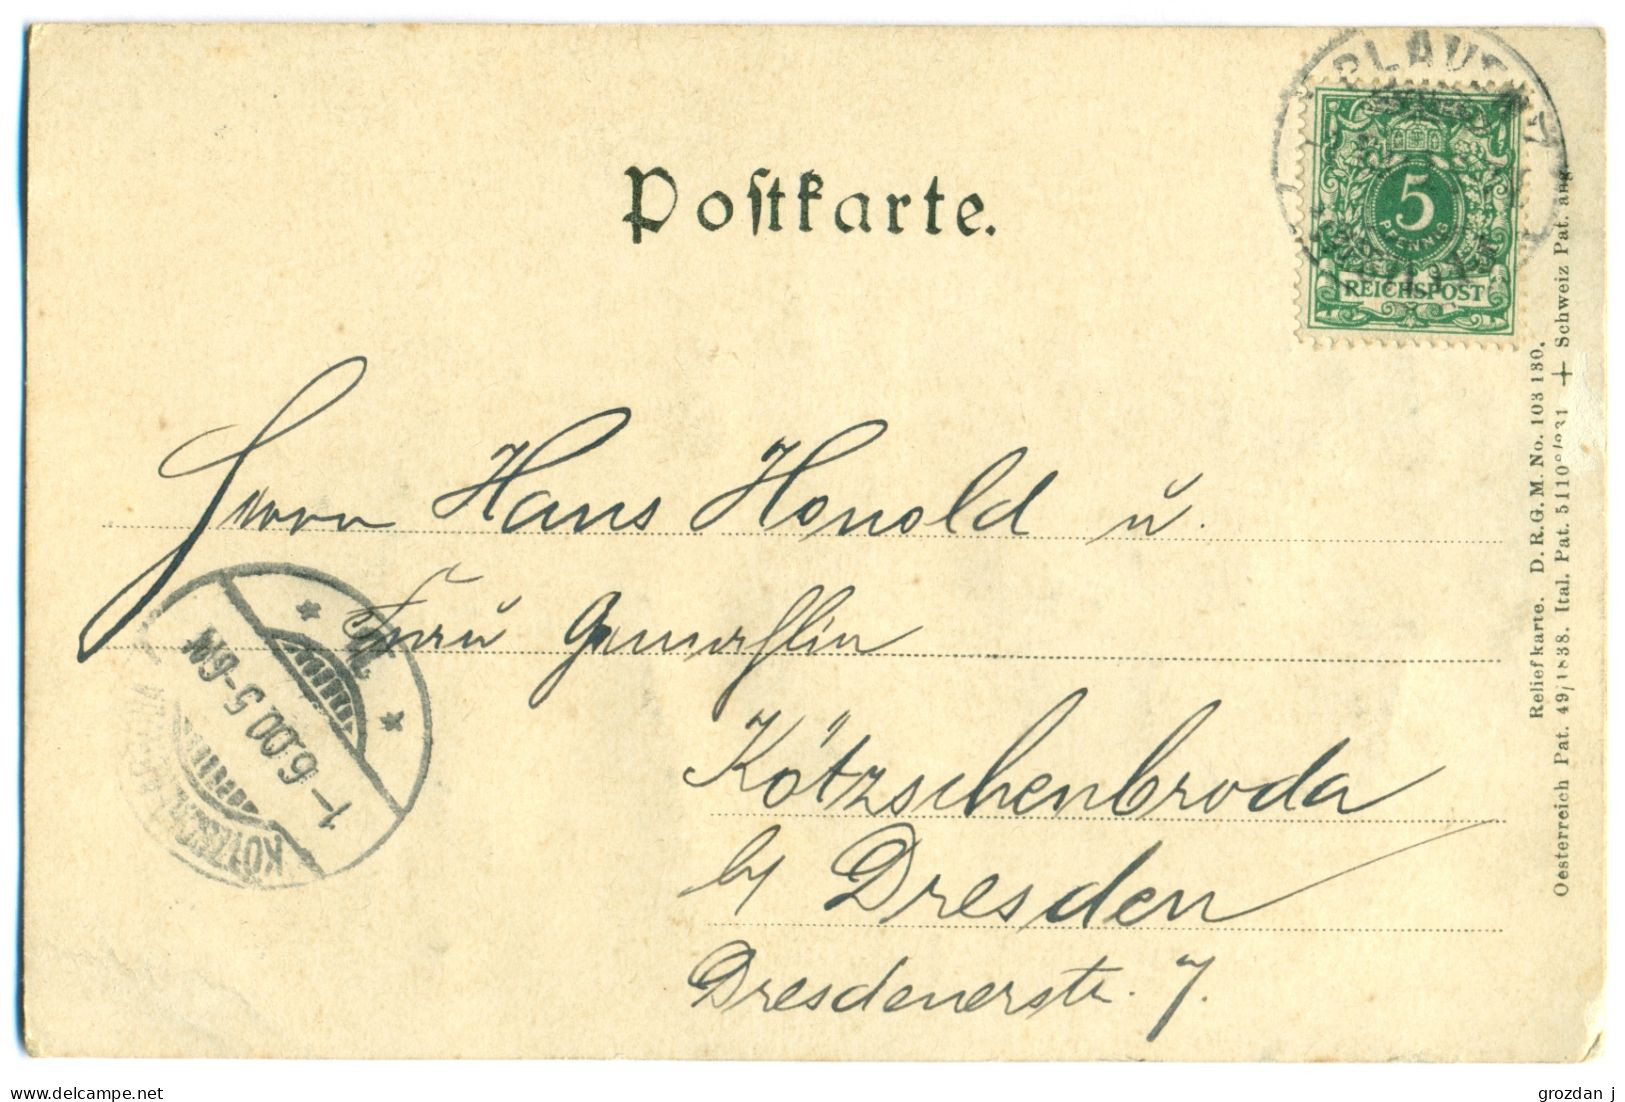 Postkarte.
PLAUEN
5
PFENNIG
REICHSPOST
Herrn Hans Honold u.
Frau Gemahlin
Kötzschenbroda
by Dresden
Dresdenerstr. 7.
1 - 6.00. 5-6N
KÖTZSCHENBRODA
Reliefkarte. D.R.G.M. No. 103 180.
Oesterreich Pat. 49/1838. Ital. Pat. + Schweiz Pat. ang.
delcampe.net
grozdan j